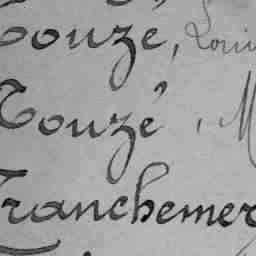 Touzé, Loui
Touzé, M
Tranchemer